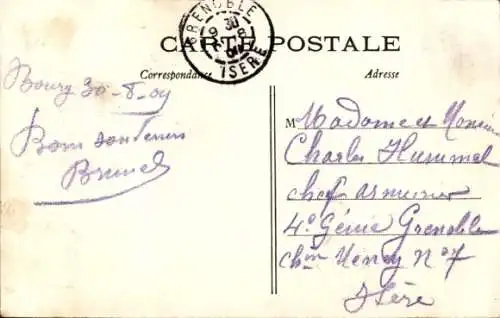 GRENOBLE
30
ISERE
CARTE POSTALE
Correspondance
Adresse
Bourg 30-8-09
Bons souvenirs
Brunel
M Madame et Monsieur
Charles Hummel
chef armurier
4e Génie Grenoble
chin Henry No 7
Isère